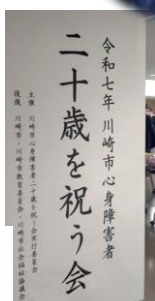 令和七年 川崎市心身障害者
二十歳を祝う会
主催 川崎市心身障害者二十歳を祝う会実行委員会
後援 川崎市・川崎市教育委員会・川崎市社会福祉協議会